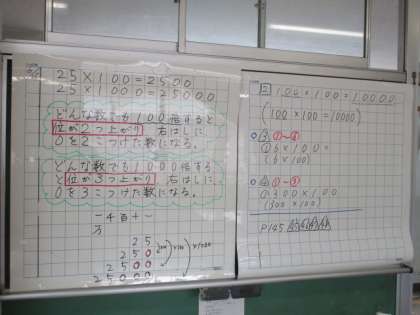 25×100=2500
25×1000=25000
どんな数でも100倍すると
位が2つ上がり、右はしに
0を2こつけた数になる。
どんな数でも1000倍する
と位が3つ上がり、右はしに
0を3こつけた数になる。
一千百十一
万
25
250
2500
25000
100×100=10000
(100×100=10000)
①6×100=
(6×100)
①300×100
(300×100)
P145